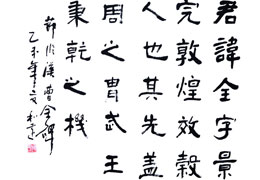 君諱全字景
完敦煌效穀
人也其先蓋
周之胄武王
秉乾之機
節臨漢曹全碑
乙未年